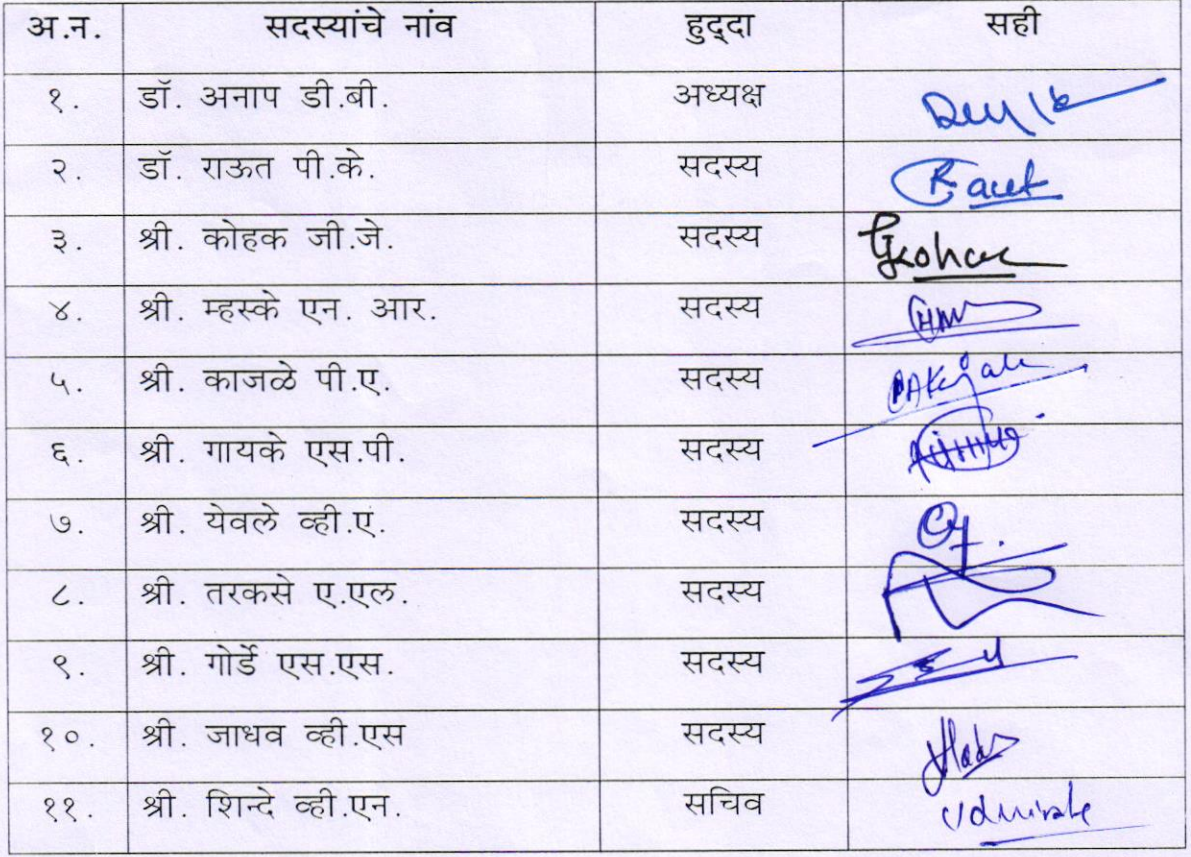 अ.न. सदस्यांचे नांव हुद्दा सही
१. डॉ. अनाप डी.बी. अध्यक्ष
२. डॉ. राऊत पी.के. सदस्य Raut
३. श्री. कोहक जी.जे. सदस्य
४. श्री. म्हस्के एन. आर. सदस्य
५. श्री. काजळे पी.ए. सदस्य
६. श्री. गायके एस.पी. सदस्य
७. श्री. येवले व्ही.ए. सदस्य
८. श्री. तरकसे ए.एल. सदस्य
९. श्री. गोर्डे एस.एस. सदस्य
१०. श्री. जाधव व्ही.एस सदस्य
११. श्री. शिन्दे व्ही.एन. सचिव